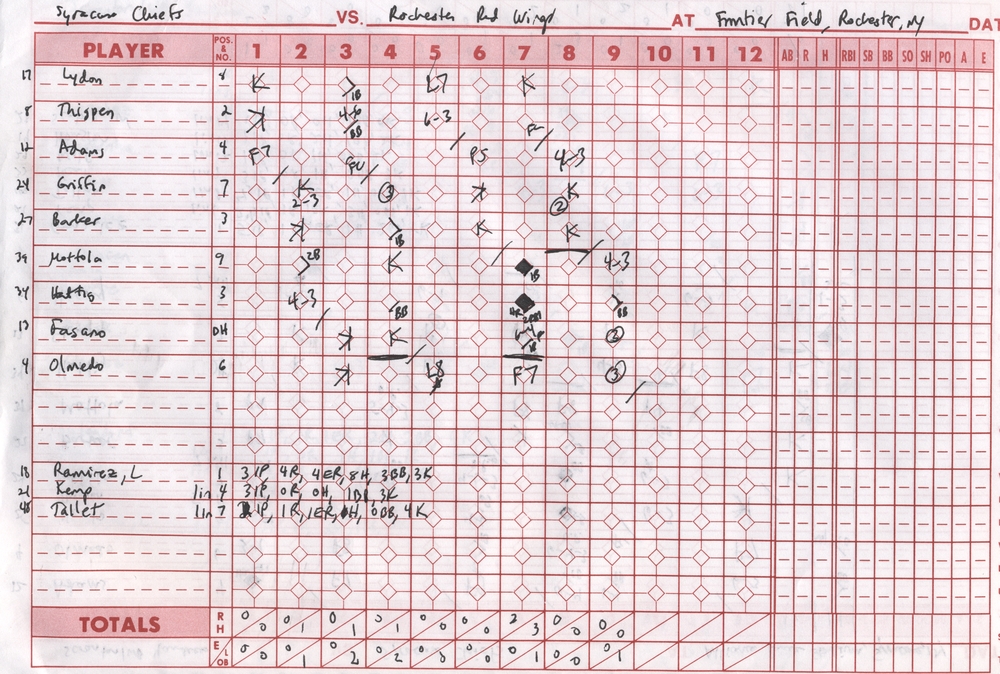 Syracuse Chiefs VS. Rochester Red Wings AT Frontier Field, Rochester, NY DAT
PLAYER POS. & NO. 1 2 3 4 5 6 7 8 9 10 11 12 AB R H RBI SB BB SO SH PO A E
17 Lydon 8 K 1B L7 K
8 Thigpen 2 K 4-6 BB 6-3
12 Adams 4 F7 P5 4-3
24 Griffin 7 K 2-3 3 K K 2
27 Barker 3 K 1B K K
39 Mottola 9 2B K 1B 4-3
34 Hattig 3 4-3 BB BB
13 Fasano DH K K 1B 2
4 Olmedo 6 K L8 F7 3
18 Ramirez, L 1 3 IP, 4R, 4ER, 8H, 3BB, 3K
21 Kemp 1in4 3 IP, 0R, 0H, 1BB, 3K
48 Tallet 1in7 2 IP, 1R, 1ER, 1H, 0BB, 4K
TOTALS R H 0 0 0 1 0 1 0 1 0 0 0 0 2 3 0 0 0 0
E LOB 0 0 0 1 0 2 0 2 0 0 0 0 0 1 0 0 0 1